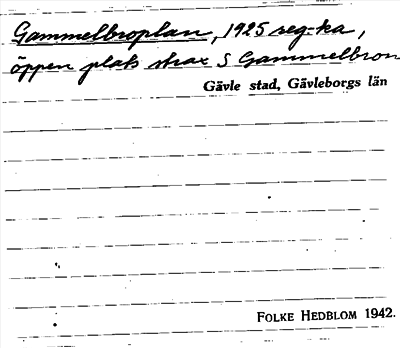 Gammelbroplan, 1925 reg-ka,
öppen plats strax S Gammelbron
Gävle stad, Gävleborgs län
FOLKE HEDBLOM 1942.